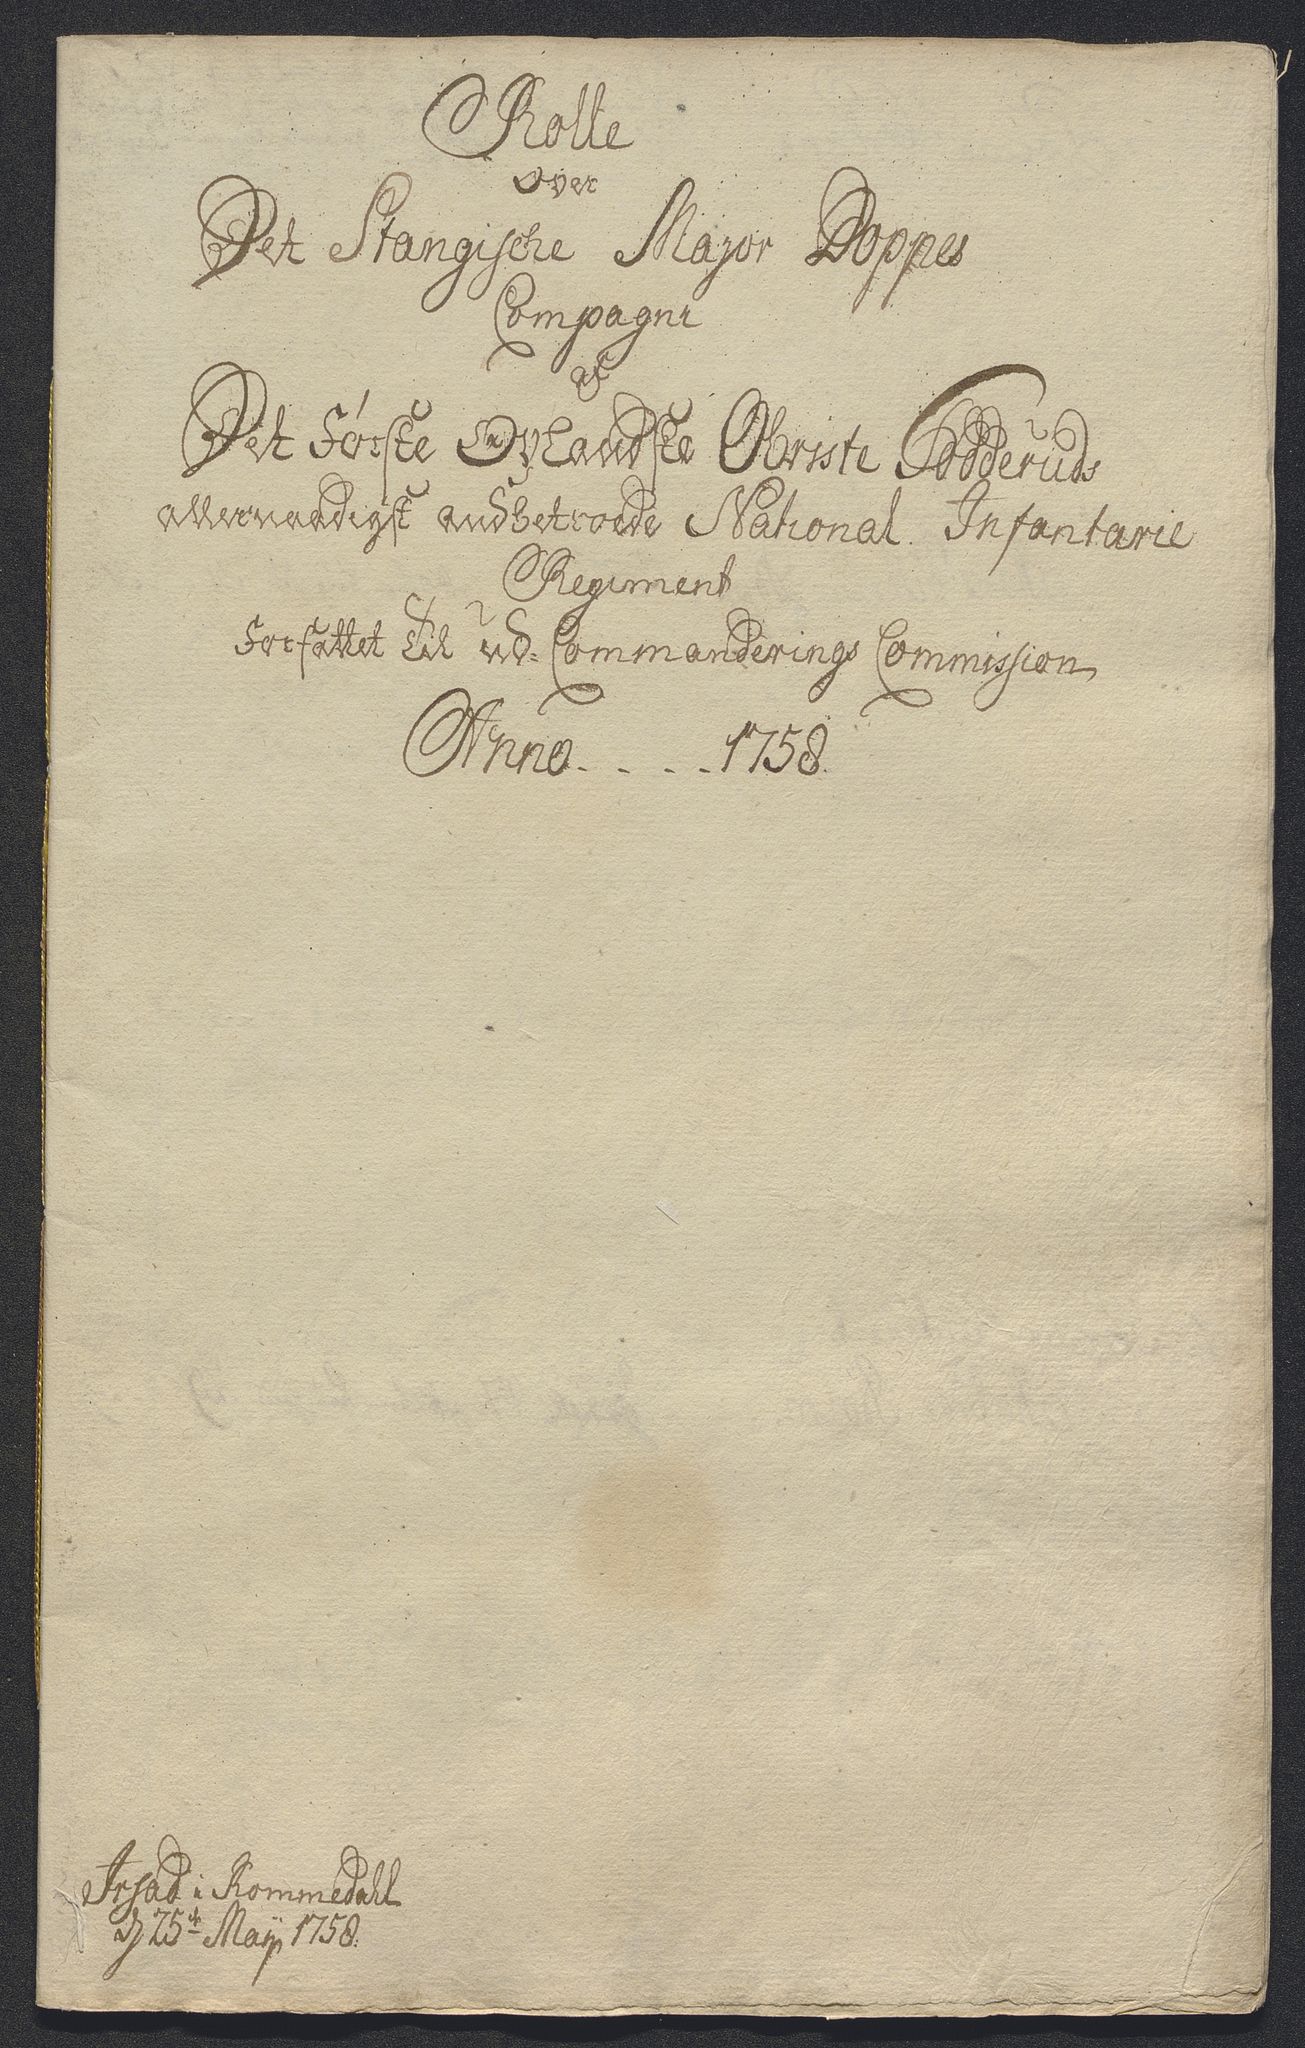 Rolle
over
Det Stangische Major Doppes
Compagni
af
Det første Oplandske Obriste Fodderuds
allernaadigst andbetroede National Infantarie
Regiment
forfattet til ud-Commanderings Commission
Anno . . . . 1758.
i Rommedahl
25te Maij 1758.